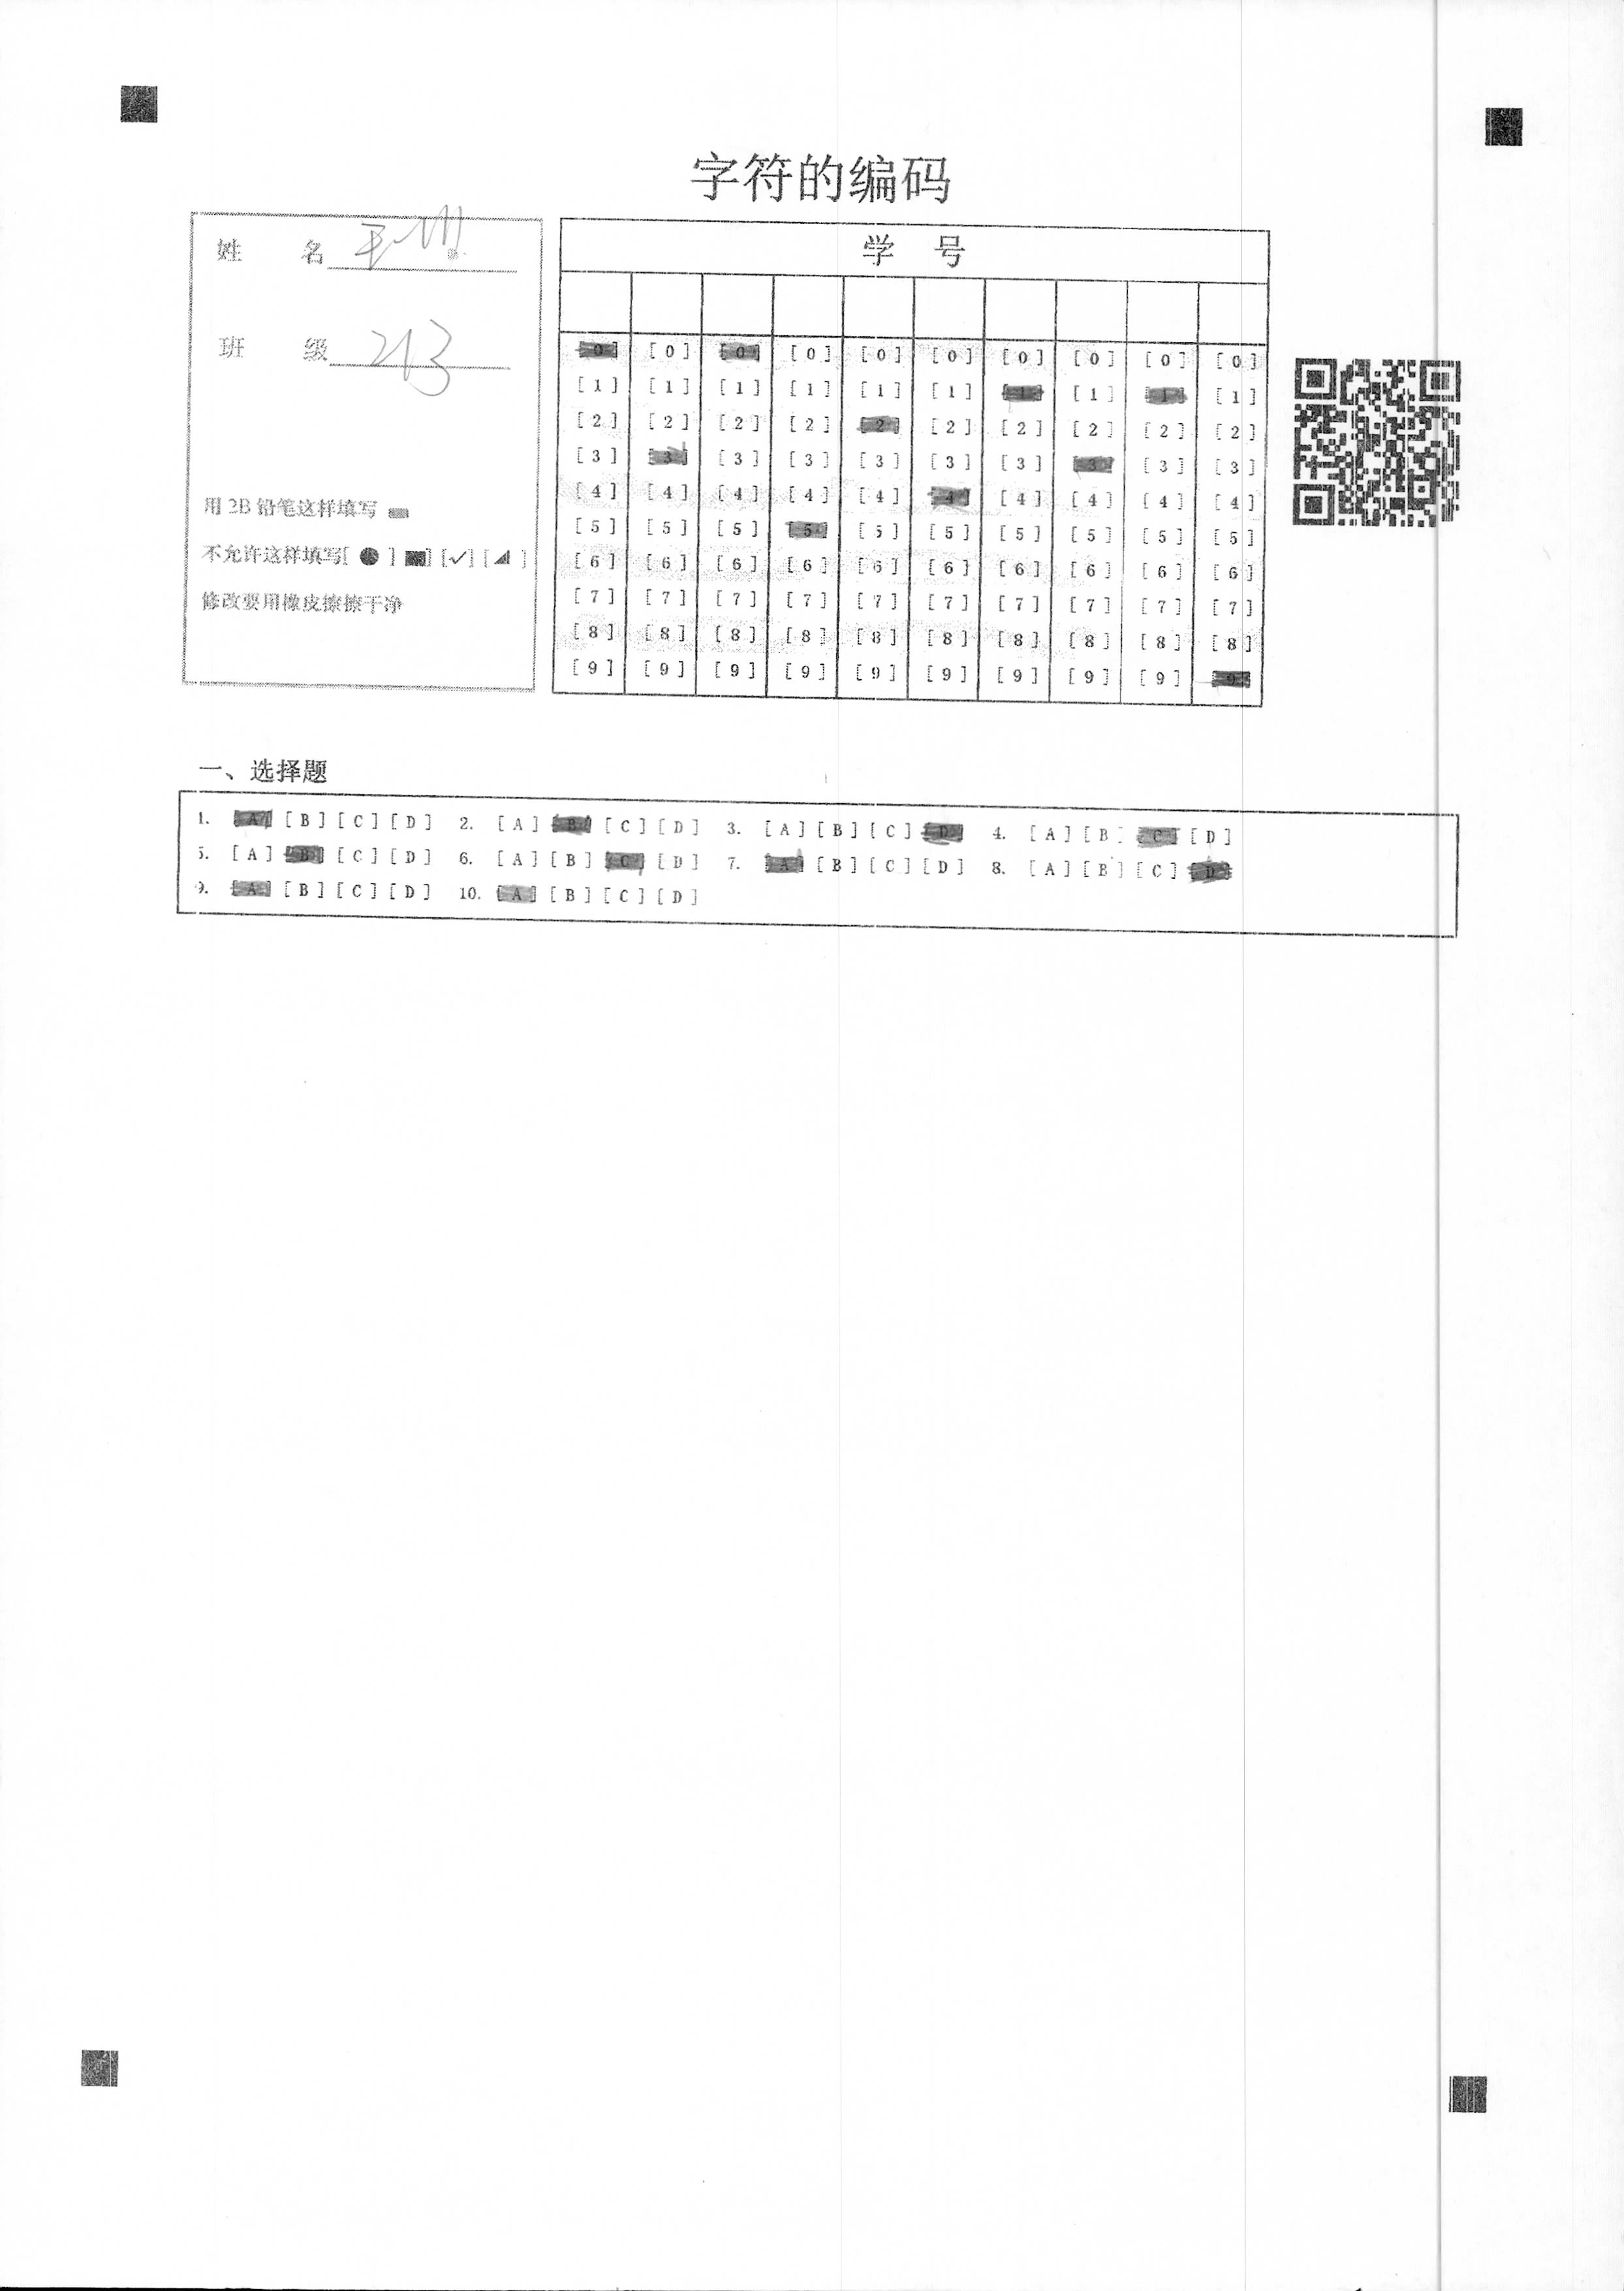 字符的编码
姓 名
班 级 213
用 2B 铅笔这样填写
不允许这样填写[ ● ] [■] [✓] [◢ ]
修改要用橡皮擦擦干净
学 号
[0] [0] [0] [0] [0] [0] [0] [0] [0] [0]
[1] [1] [1] [1] [1] [1] [1] [1] [1] [1]
[2] [2] [2] [2] [2] [2] [2] [2] [2] [2]
[3] [3] [3] [3] [3] [3] [3] [3] [3] [3]
[4] [4] [4] [4] [4] [4] [4] [4] [4] [4]
[5] [5] [5] [5] [5] [5] [5] [5] [5] [5]
[6] [6] [6] [6] [6] [6] [6] [6] [6] [6]
[7] [7] [7] [7] [7] [7] [7] [7] [7] [7]
[8] [8] [8] [8] [8] [8] [8] [8] [8] [8]
[9] [9] [9] [9] [9] [9] [9] [9] [9] [9]
一、选择题
1. [A] [B] [C] [D] 2. [A] [B] [C] [D] 3. [A] [B] [C] [D] 4. [A] [B] [C] [D]
5. [A] [B] [C] [D] 6. [A] [B] [C] [D] 7. [A] [B] [C] [D] 8. [A] [B] [C] [D]
9. [A] [B] [C] [D] 10. [A] [B] [C] [D]